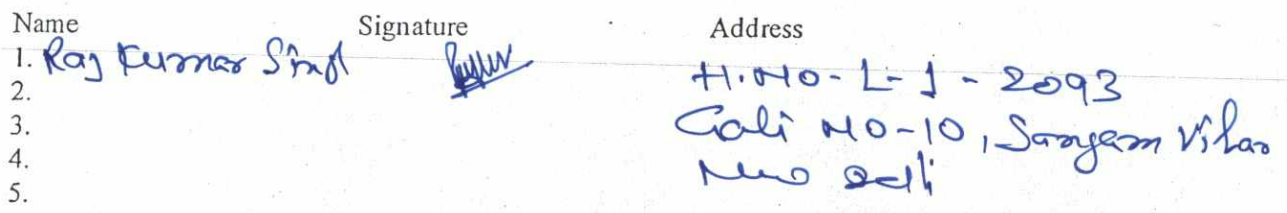 Name Signature Address
1. Raj Kumar Singh
H.NO-L-1-2093
2.
3. Gali NO-10, Sangam Vihar
4. New Delhi
5.